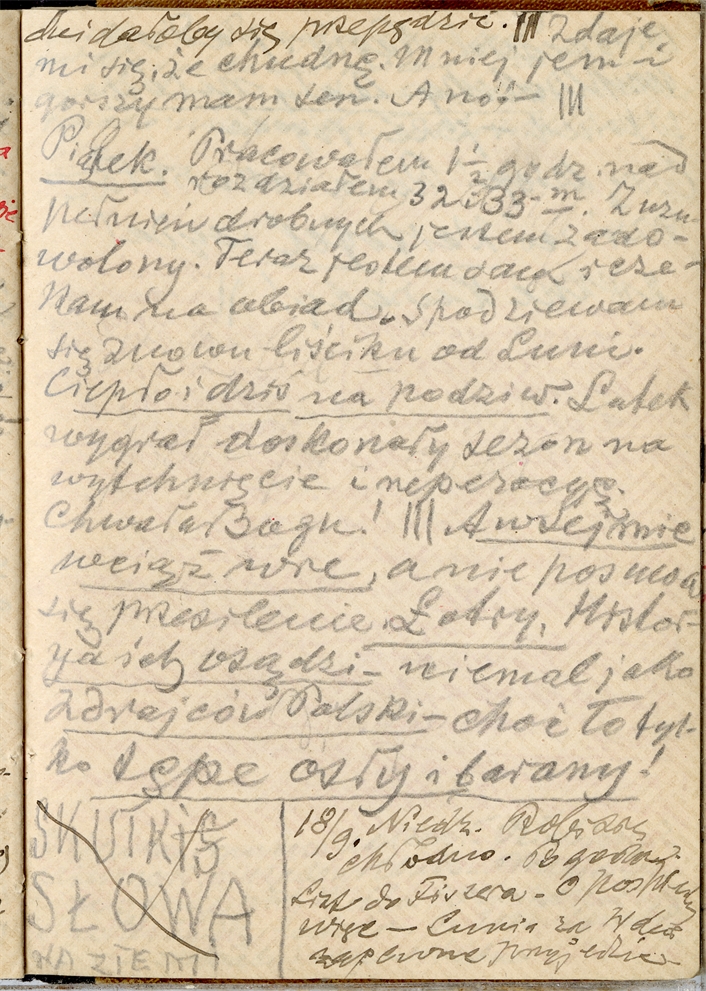 dałoby się przepędzić. III Zdaje
mi się, że chudnę. Mniej jem i
gorszy mam sen. A no! — III
Piątek. Pracowałem 1½ godz. nad
rozdziałem 32 i 33-m. Z uzu-
pełnień drobnych jestem zado-
wolony. Teraz jestem sam i cze-
kam na obiad. Spodziewam
się znowu liściku od Luni.
Ciepło i dziś na podziw. Lutek
wygrał doskonały sezon na
wytchnięcie i reperacyę.
Chwała Bogu! III A w Sejmie
wciąż wre, a nie posuwa
się przesilenie. Łotry. Histor-
ya ich osądzi — niemal jako
zdrajców Polski — choć to tyl-
ko tępe osły i barany!
SKUTKI
SŁOWA
NA ZIEMI
18/9. Niedz.
chłodno.
List do Fiszera —
więc — Lunia za
zapewne przyjedzie